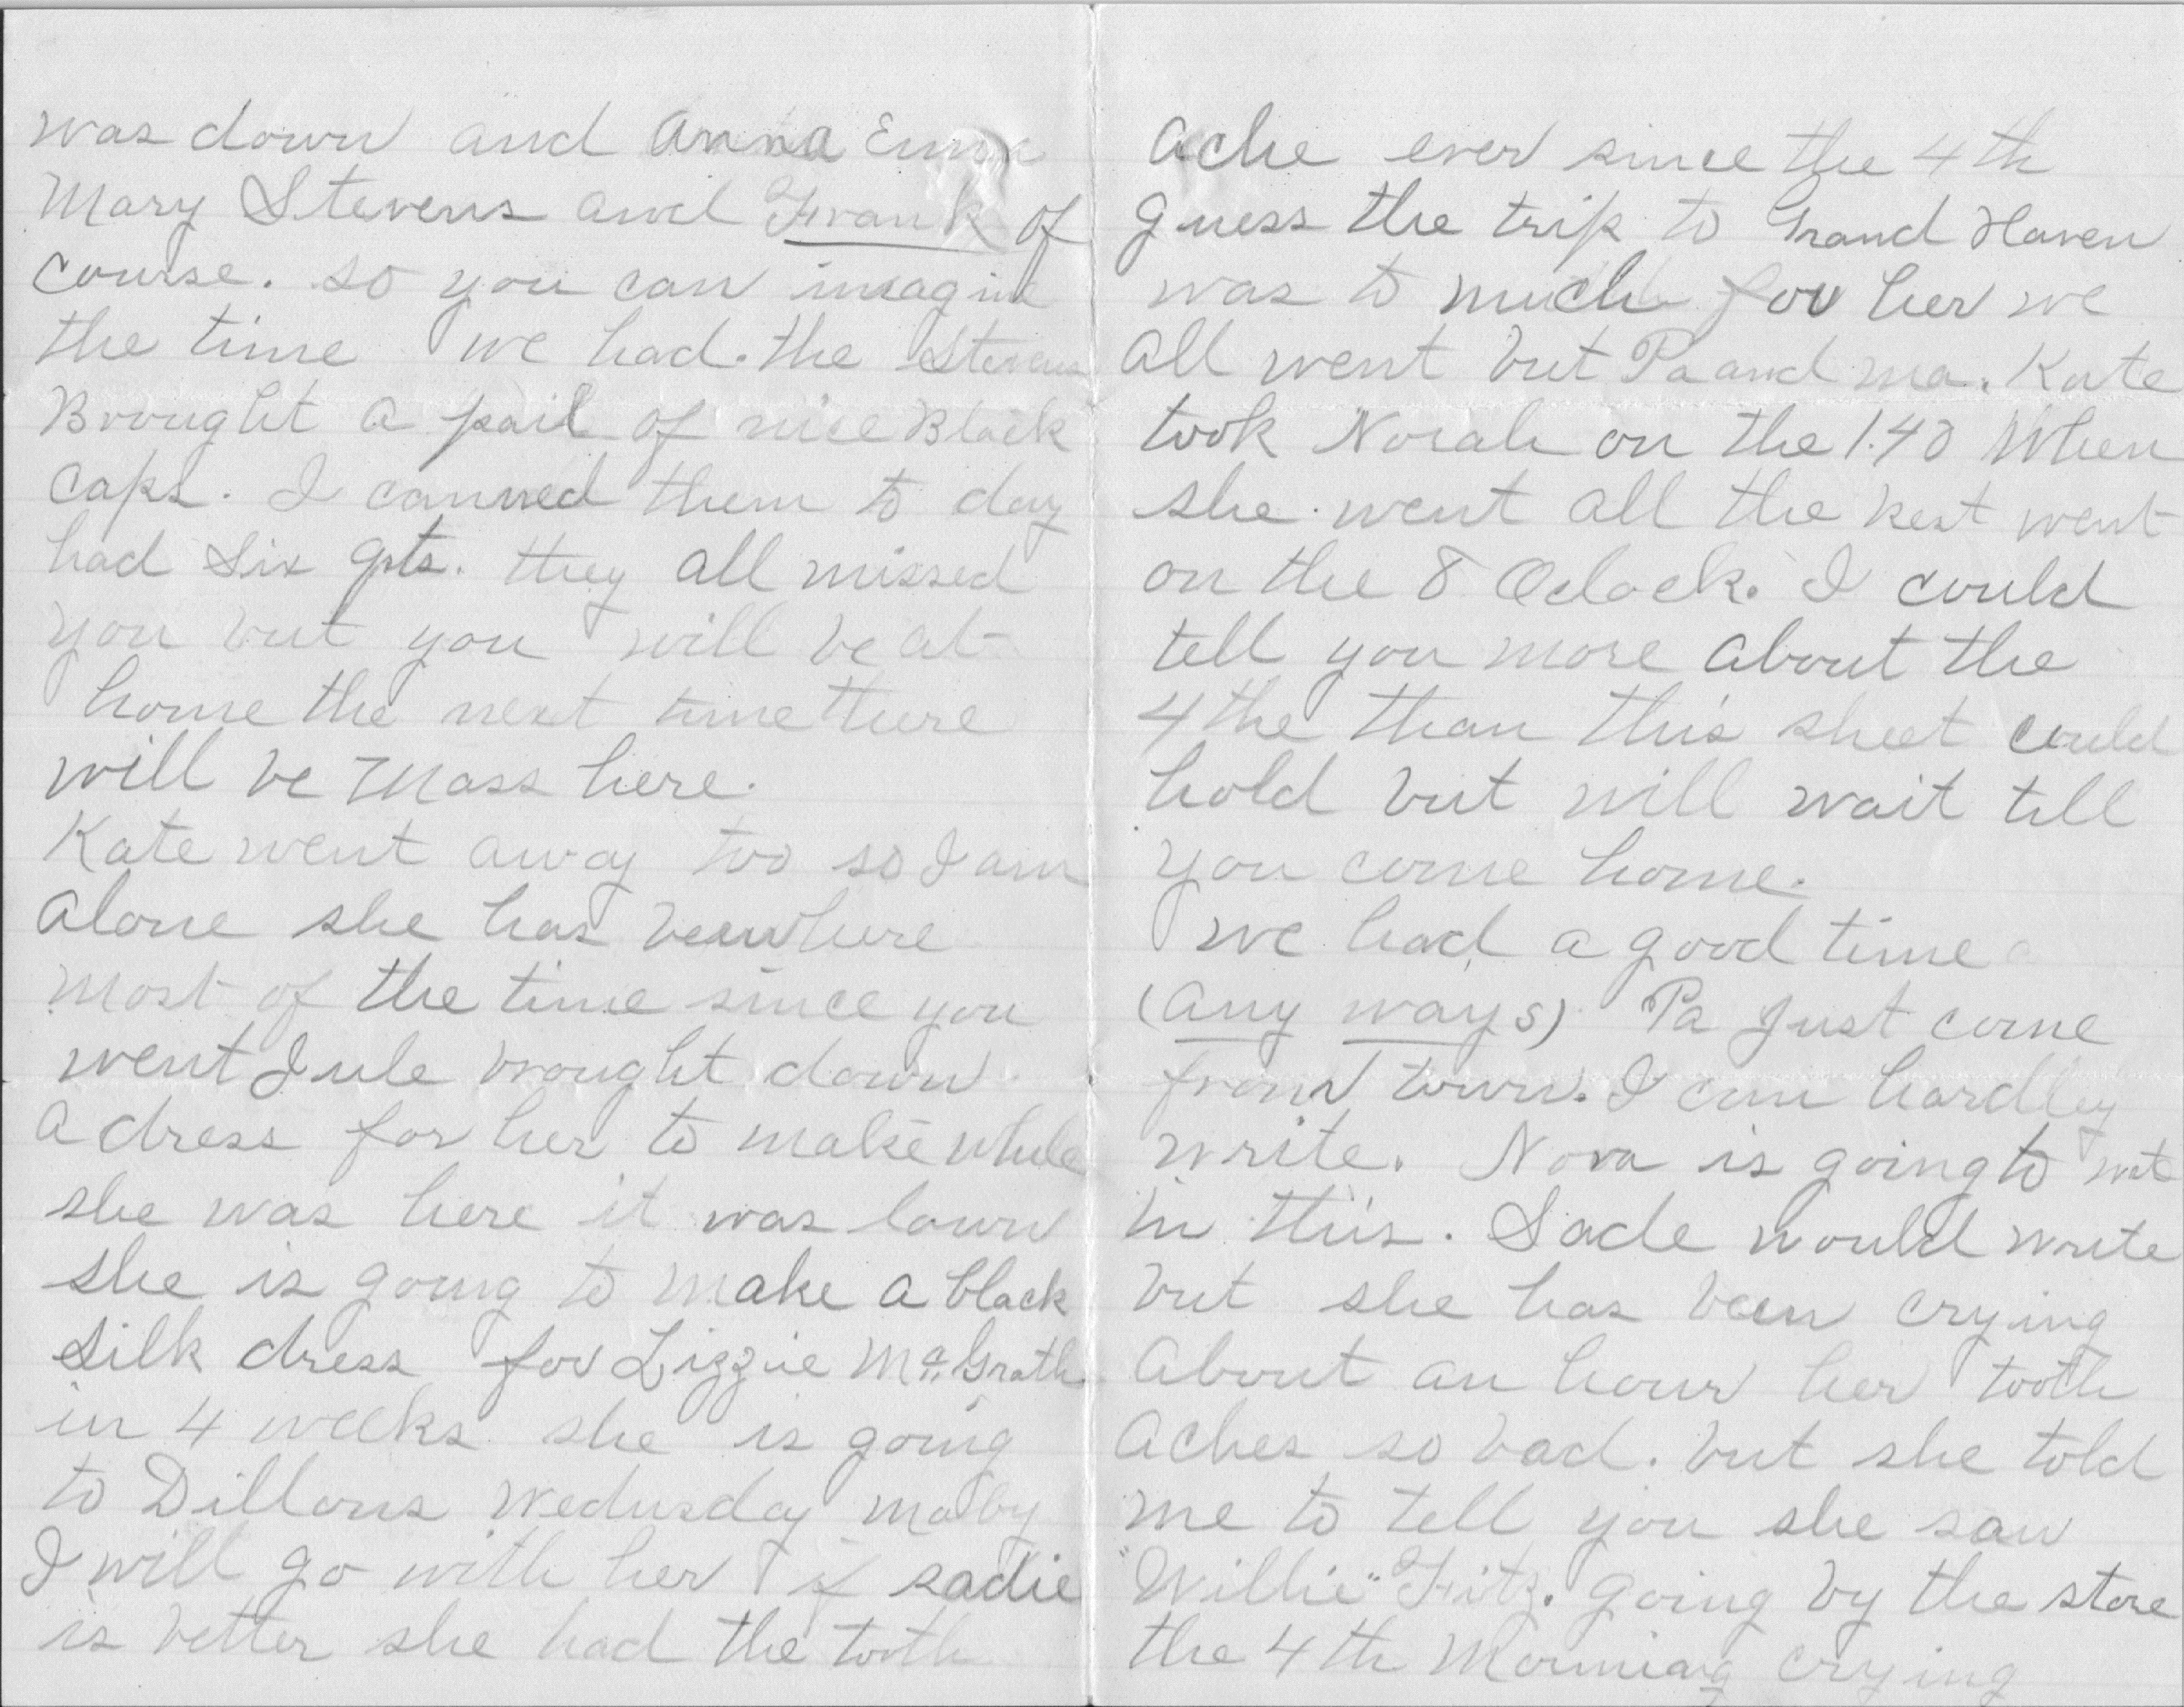 was down and Anna Emma
Mary Stevens and Frank of
course. so you can imagine
the time we had. the Stevens
Brought a pail of nice Black
caps. I canned them to day
had Six qts. they all missed
you but you will be at
home the next time there
will be Mass here.
Kate went away too so I am
alone she has been here
most of the time since you
went Jule brought down
a dress for her to make while
she was here it was lawn
she is going to make a black
Silk dress for Lizzie Mc Grath
in 4 weeks she is going
to Dillons Wednesday maby
I will go with her if sadie
is better she had the tooth
ache ever since the 4th
guess the trip to Grand Haven
was to much for her we
all went but Pa and ma. Kate
took Norah on the 1.40 When
she went all the rest went
on the 8 Oclock. I could
tell you more about the
4 the than this sheet could
hold but will wait till
you come home.
we had a good time
(any ways) Pa Just come
from town. I can hardley
write. Nora is going to
in this. Sade would write
but she has been crying
about an hour her tooth
aches so bad. but she told
me to tell you she saw
"Willie" Fitz. going by the store
the 4 th Morning crying